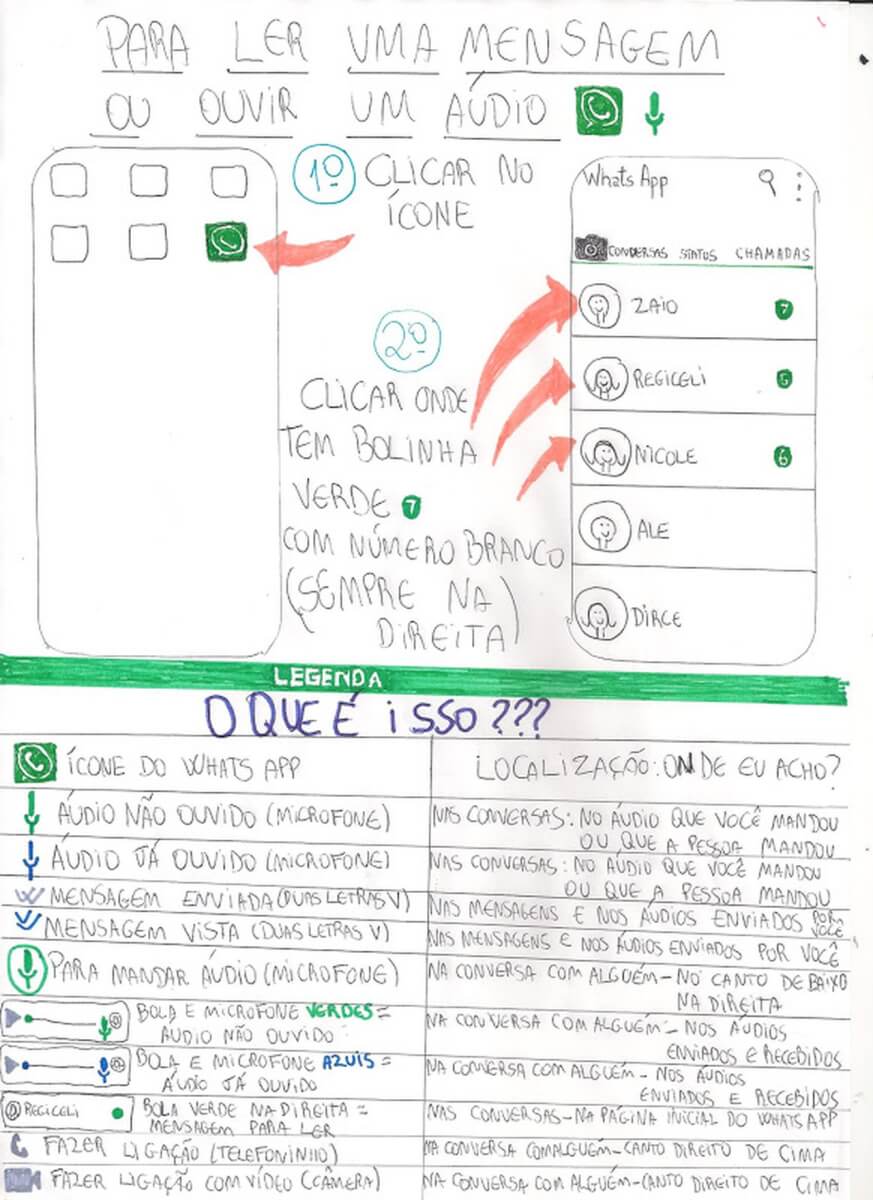 PARA LER UMA MENSAGEM
OU OUVIR UM ÁUDIO
1º CLICAR NO
ÍCONE
2º
CLICAR ONDE
TEM BOLINHA
VERDE 7
COM NÚMERO BRANCO
(SEMPRE NA
DIREITA)
Whats App
CONVERSAS STATUS CHAMADAS
ZAIO 7
REGICELI 5
NICOLE 6
ALE
DIRCE
LEGENDA
O QUE É ISSO???
ÍCONE DO WHATS APP
LOCALIZAÇÃO: ONDE EU ACHO?
ÁUDIO NÃO OUVIDO (MICROFONE)
NAS CONVERSAS: NO ÁUDIO QUE VOCÊ MANDOU
OU QUE A PESSOA MANDOU
ÁUDIO JÁ OUVIDO (MICROFONE)
NAS CONVERSAS: NO ÁUDIO QUE VOCÊ MANDOU
OU QUE A PESSOA MANDOU
MENSAGEM ENVIADA (DUAS LETRAS V)
NAS MENSAGENS E NOS ÁUDIOS ENVIADOS POR VOCÊ
MENSAGEM VISTA (DUAS LETRAS V)
NAS MENSAGENS E NOS ÁUDIOS ENVIADOS POR VOCÊ
PARA MANDAR ÁUDIO (MICROFONE)
NA CONVERSA COM ALGUÉM - NO CANTO DE BAIXO
NA DIREITA
BOLA E MICROFONE VERDES =
ÁUDIO NÃO OUVIDO
NA CONVERSA COM ALGUÉM - NOS ÁUDIOS
ENVIADOS E RECEBIDOS
BOLA E MICROFONE AZUIS =
ÁUDIO JÁ OUVIDO
NA CONVERSA COM ALGUÉM - NOS ÁUDIOS
ENVIADOS E RECEBIDOS
REGICELI
BOLA VERDE NA DIREITA =
MENSAGEM PARA LER
NAS CONVERSAS - NA PÁGINA INICIAL DO WHATS APP
FAZER LIGAÇÃO (TELEFONINHO)
NA CONVERSA COM ALGUÉM - CANTO DIREITO DE CIMA
FAZER LIGAÇÃO COM VÍDEO (CÂMERA)
NA CONVERSA COM ALGUÉM - CANTO DIREITO DE CIMA